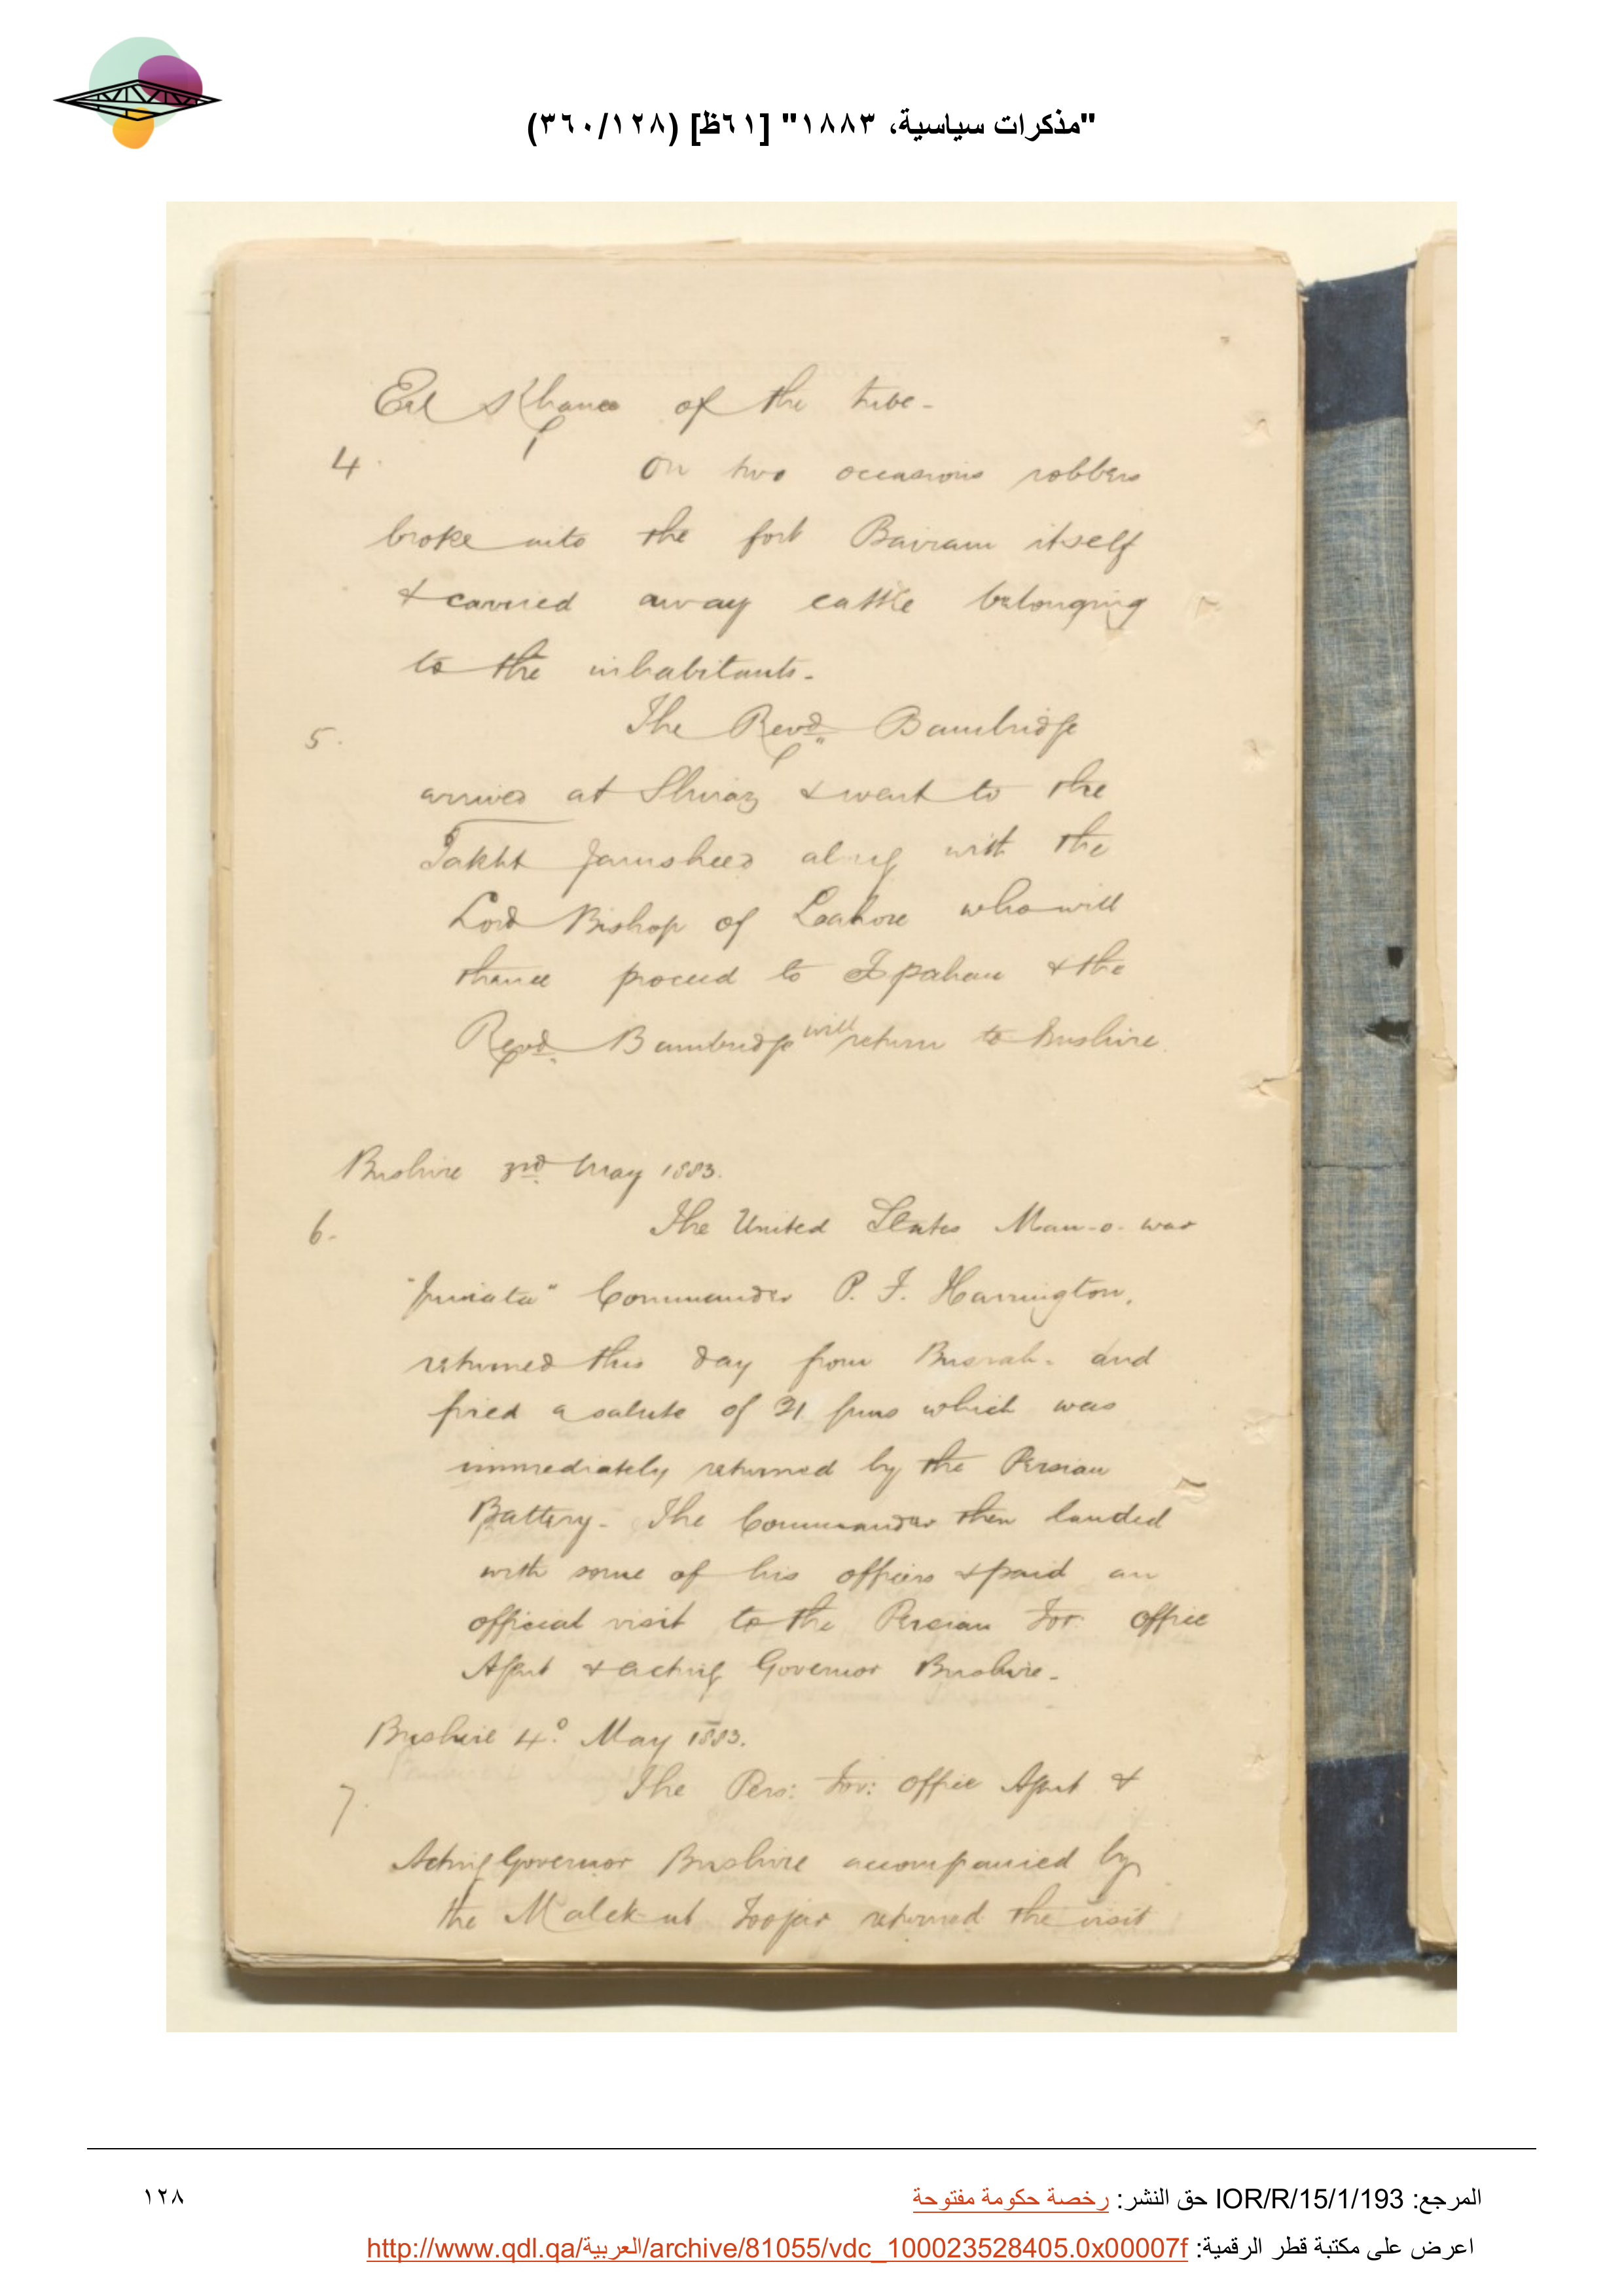 "مذكرات سياسية، ١٨٨٣" [٦١ظ] (٣٦٠/١٢٨)
Eel Khanee of the tribe -
4. On two occasions robbers
broke into the fort Bairam itself
& carried away cattle belonging
to the inhabitants.
5. The Revd. Bambridge
arrived at Shiraz & went to the
Takht Jamsheed along with the
Lord Bishop of Lahore who will
thence proceed to Ispahan & the
Revd. Bambridge will return to Bushire.
Bushire 3rd. May 1883.
6. The United States Man-o-war
"Juniata" Commander P. F. Harrington,
returned this day from Busrah. and
fired a salute of 21 guns which was
immediately returned by the Persian
Battery. The Commander then landed
with some of his officers & paid an
official visit to the Persian For: office
Agent & acting Governor Bushire.
Bushire 4o. May 1883.
7. The Pers: For: office Agent &
Acting Governor Bushire accompanied by
the Malek-ut Toojar returned the visit
المرجع: IOR/R/15/1/193 حق النشر: رخصة حكومة مفتوحة
١٢٨
اعرض على مكتبة قطر الرقمية: http://www.qdl.qa/العربية/archive/81055/vdc_100023528405.0x00007f